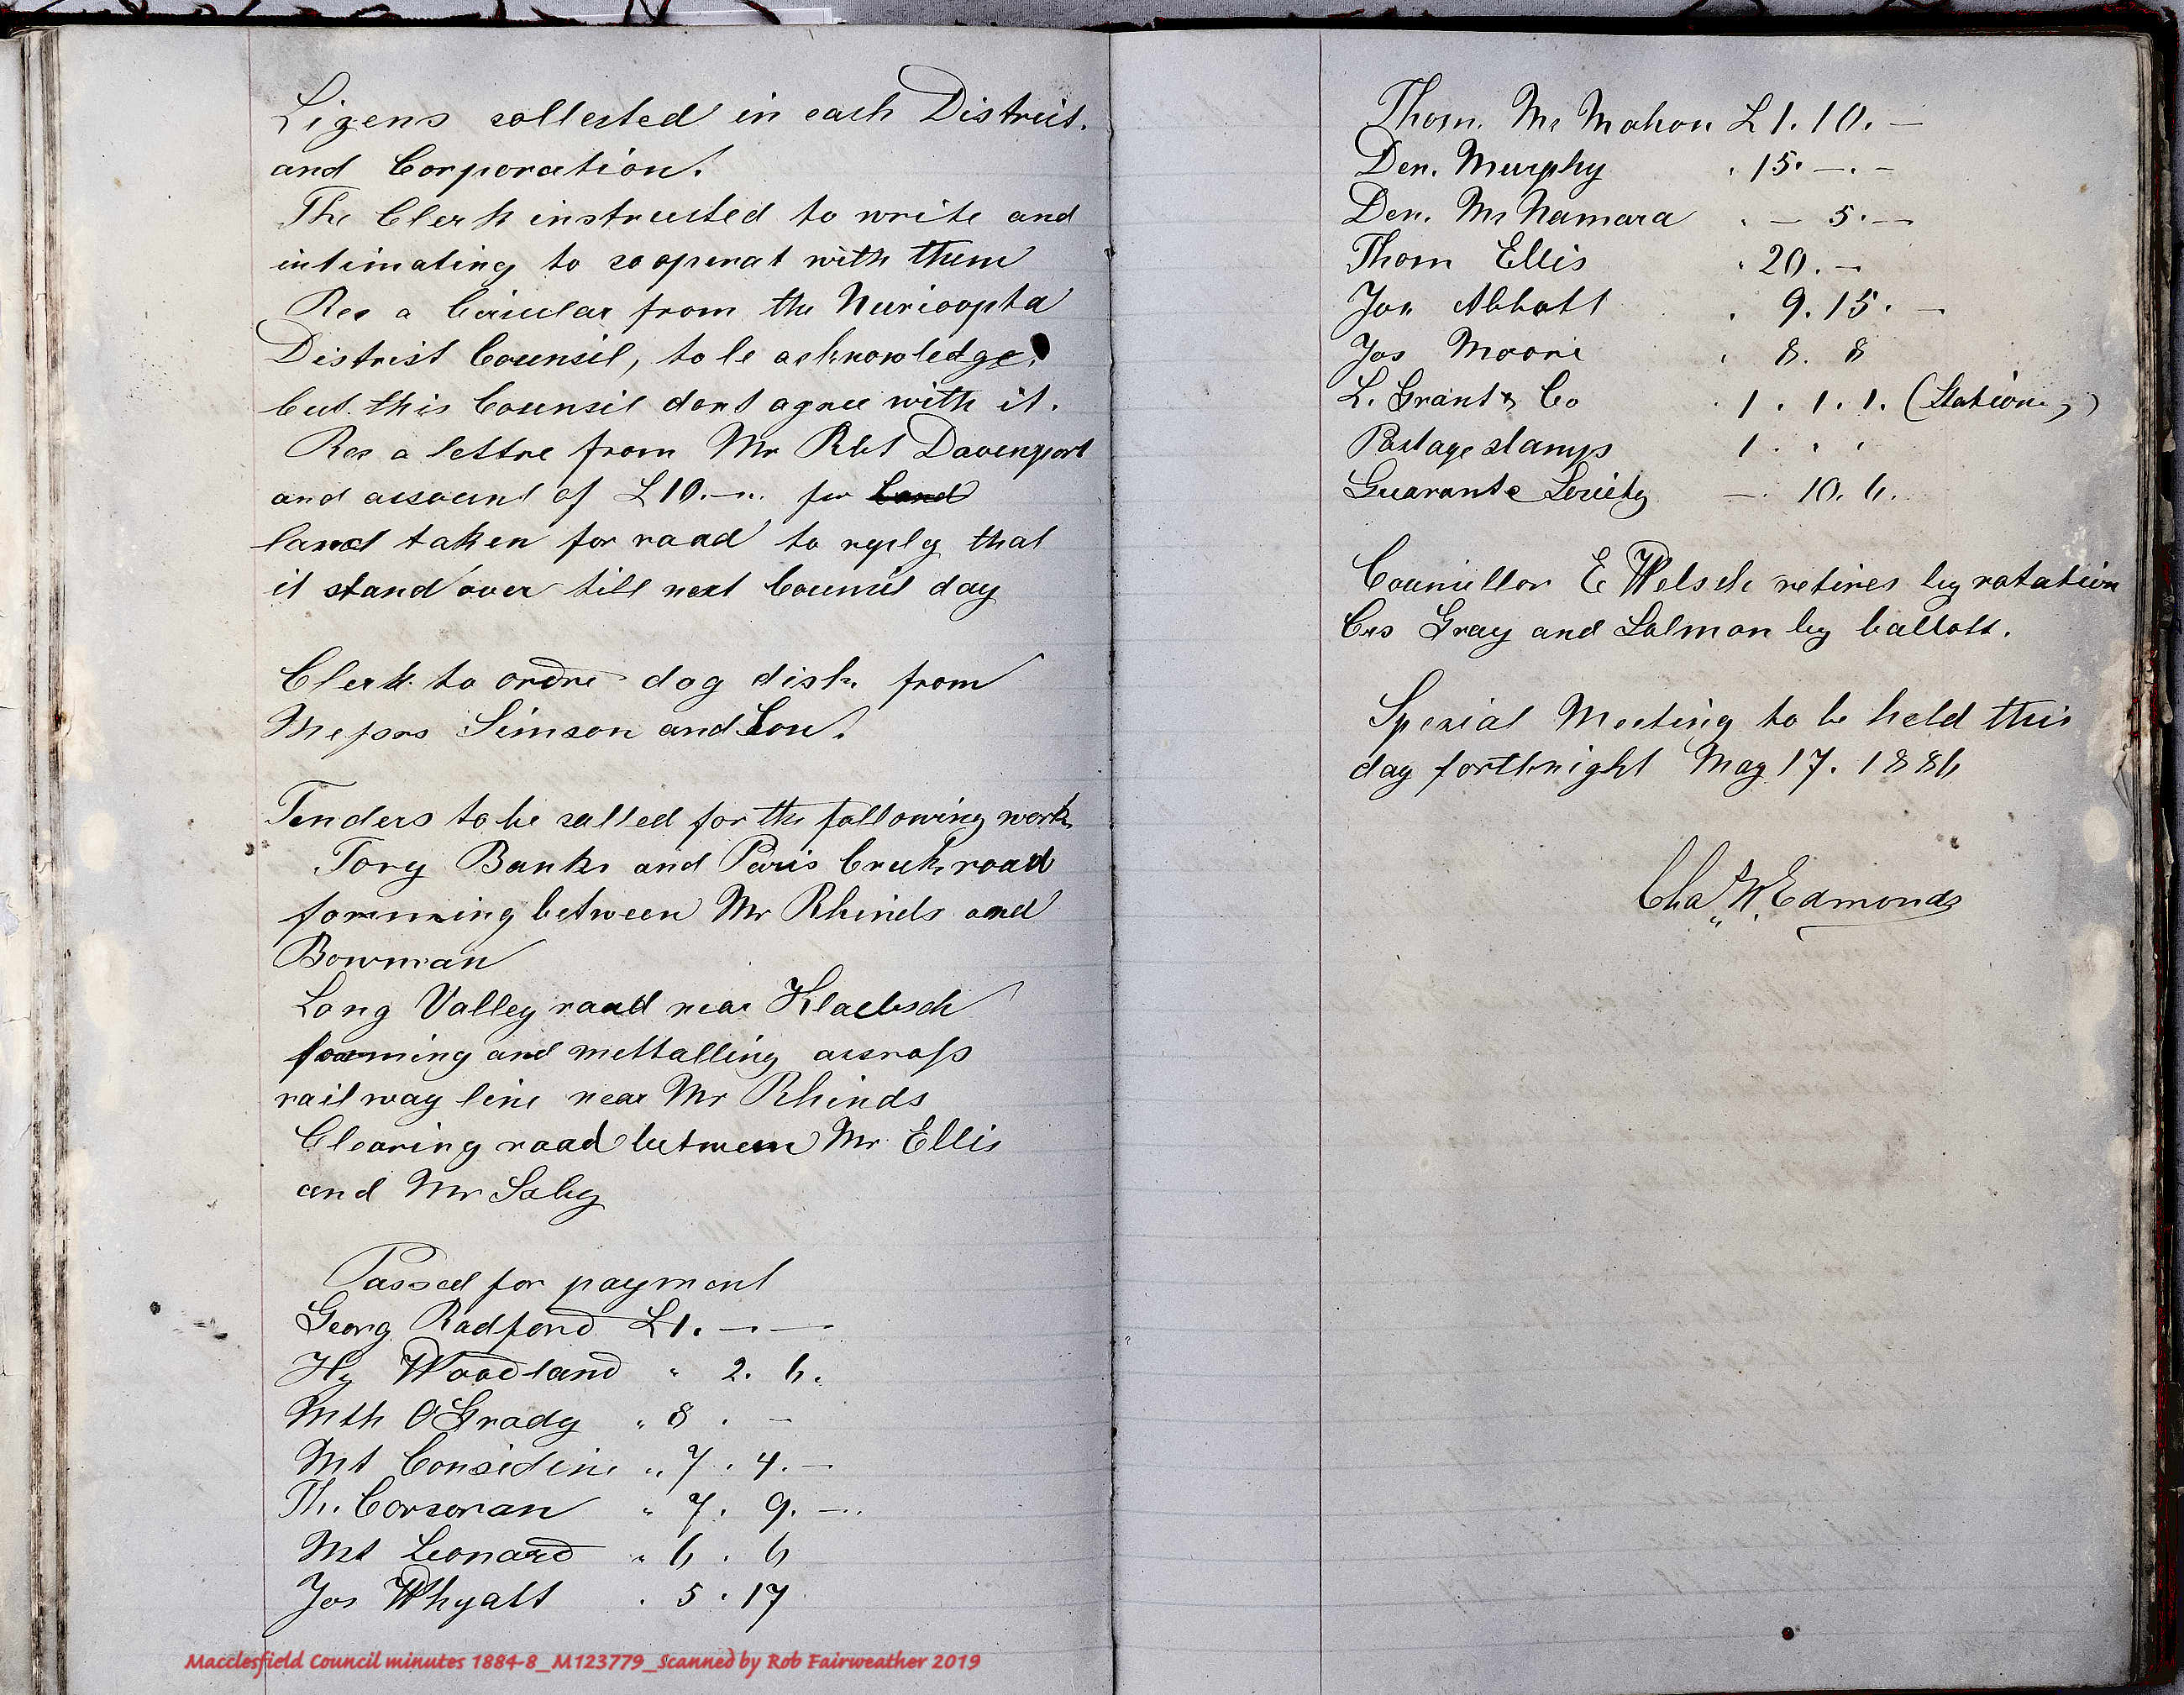 Ligens collected in each District.
and Corporation.
The Clerk instructed to write and
intimating to cooperat with them
Rec a Circular from the Nurioopta
District Council, to be acknowledge.
but this Council dont agree with it.
Rec a lettre from Mr Rbt Davenport
and account of £10.–. for land
land taken for road to reply that
it stand over till next Council day
Clerk to ordre dog disk. from
Messrs Simson and Son.
Tenders to be called for the following work
Tory Banks and Paris Creek road
forming between Mr Rhinds and
Bowman
Long Valley road near Klaebsch
forming and mettalling accross
railway line near Mr Rhinds
Clearing road between Mr Ellis
and Mr Saby
Passed for payment
Georg Radford £1. – –
Hy Woodland " 2. 6.
Mth OGrady " 8 . –
Mt Considine " 7. 4. –
Th. Corcoran " 7. 9. –.
Mt Leonard " 6 . 6
Jos Whyatt . 5 . 17
Thom. Mc Mahon £1. 10. –
Den. Murphy . 15. –. –
Den. Mc Namara . – 5. –
Thom Ellis . 20. –
Jos Abbott . 9. 15. –
Jos Moore . 8. 8
L. Grant & Co . 1 . 1. 1. (Station )
Postage stamps 1 . . .
Guarante Society –. 10. 6.
Councillor E Welsch retires by rotation
Crs Gray and Salmon by ballott.
Special Meeting to be held this
day forthnight May 17. 1886
Chas W. Edmonds
Macclesfield Council minutes 1884-8_M123779_Scanned by Rob Fairweather 2019